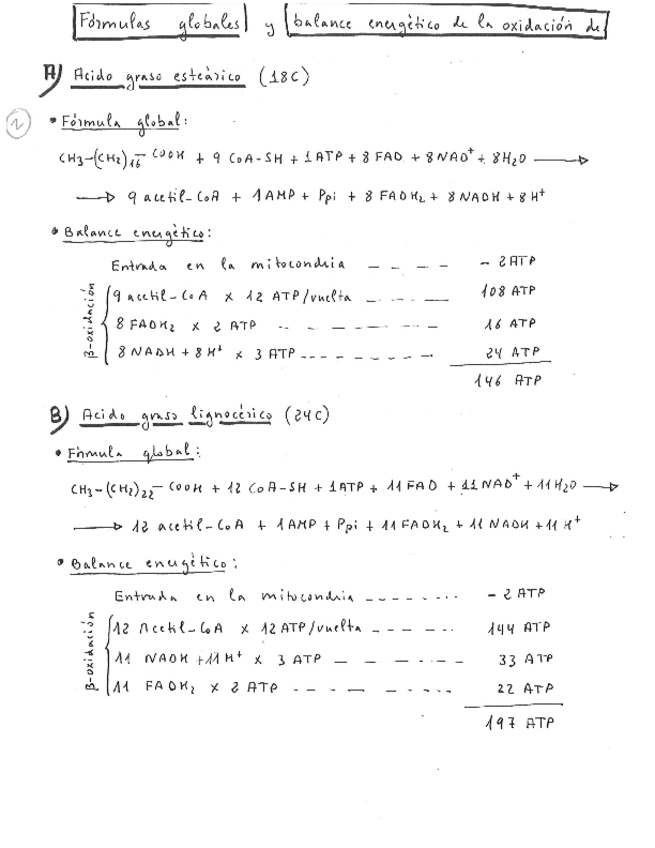 Fórmulas globales y balance energético de la oxidación de
A) Acido graso esteárico (18C)
2
• Fórmula global:
CH3-(CH2)16-COOH + 9 CoA-SH + 1ATP + 8 FAD + 8NAD+ + 8H2O →
→ 9 acetil-CoA + 1AMP + PPi + 8 FADH2 + 8NADH + 8H+
• Balance energético:
Entrada en la mitocondria - - - - - 2ATP
β-oxidación
9 acetil-CoA x 12 ATP/vuelta - - - - - 108 ATP
8 FADH2 x 2 ATP - - - - - - - 16 ATP
8 NADH + 8H+ x 3 ATP - - - - - - - - 24 ATP
146 ATP
B) Acido graso lignocérico (24C)
• Fórmula global:
CH3-(CH2)22-COOH + 12 CoA-SH + 1ATP + 11 FAD + 11 NAD+ + 11H2O →
→ 12 acetil-CoA + 1AMP + PPi + 11 FADH2 + 11 NADH + 11 H+
• Balance energético:
Entrada en la mitocondria - - - - - - - - - 2 ATP
β-oxidación
12 Acetil-CoA x 12ATP/vuelta - - - - - - 144 ATP
11 NADH + 11H+ x 3 ATP - - - - - - - 33 ATP
11 FADH2 x 2 ATP - - - - - - - - 22 ATP
197 ATP